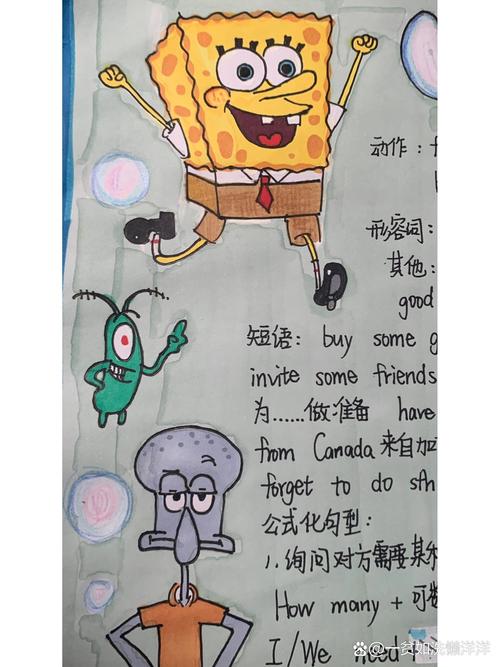 动作：f
形容词：
其他：
good
短语： buy some g
invite some friends
为......做准备 have
from Canada 来自加
forget to do sth
公式化句型：
1.询问对方需要某
How many + 可数
I/We need
@一贫如洗懒洋洋